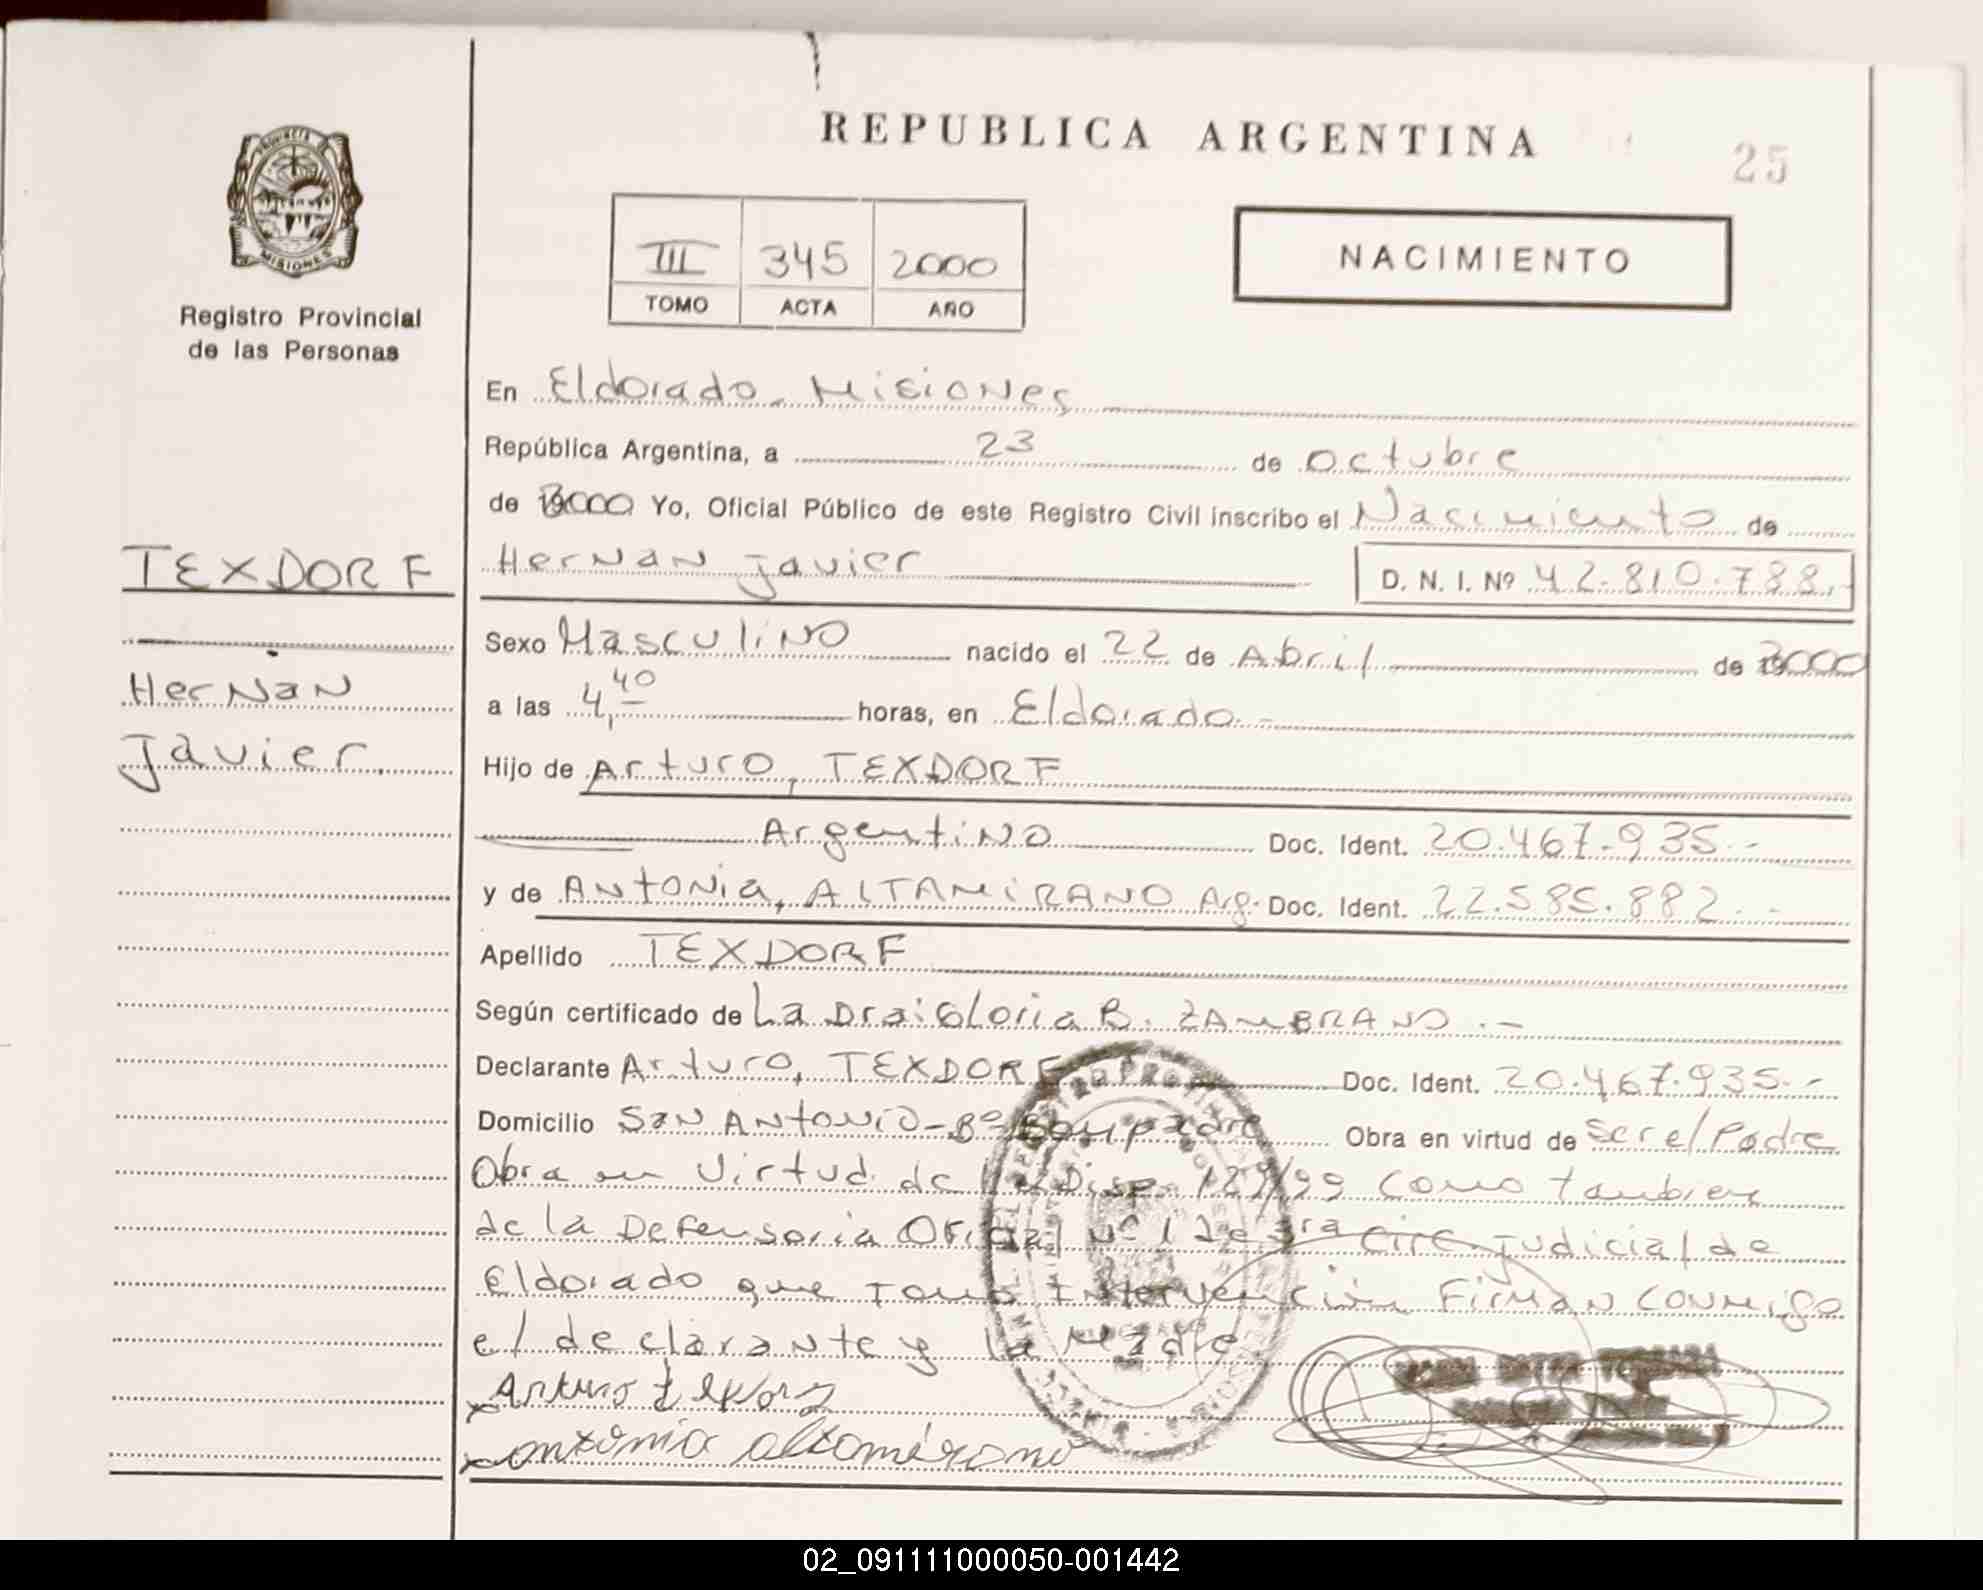 REPUBLICA ARGENTINA
25
PROVINCIA DE
MISIONES
Registro Provincial
de las Personas
III 345 2000
TOMO ACTA AÑO
NACIMIENTO
En Eldorado - Misiones
República Argentina, a 23 de Octubre
de 2000 Yo, Oficial Público de este Registro Civil inscribo el Nacimiento de
TEXDORF
Hernan
Javier
Hernan Javier D. N. I. Nº 42.810.788.-
Sexo Masculino nacido el 22 de Abril de 2000
a las 4,40 horas, en Eldorado.-
Hijo de Arturo, TEXDORF
Argentino Doc. Ident. 20.467.935.-
y de Antonia, ALTAMIRANO Arg. Doc. Ident. 22.585.882.-
Apellido TEXDORF
Según certificado de La Dra: Gloria B. ZAMBRANO.-
Declarante Arturo, TEXDORF Doc. Ident. 20.467.935.-
Domicilio San Antonio - Bº Obra en virtud de Ser el Padre
Obra en Virtud de la Disp. 129/99 Como tambien
de la Defensoria Oficial Nº 1 de 3ra Circ Judicial de
Eldorado que Tomo Intervención Firman Conmigo
el declarante y la Madre
Arturo
antonia altamirano
02_091111000050-001442